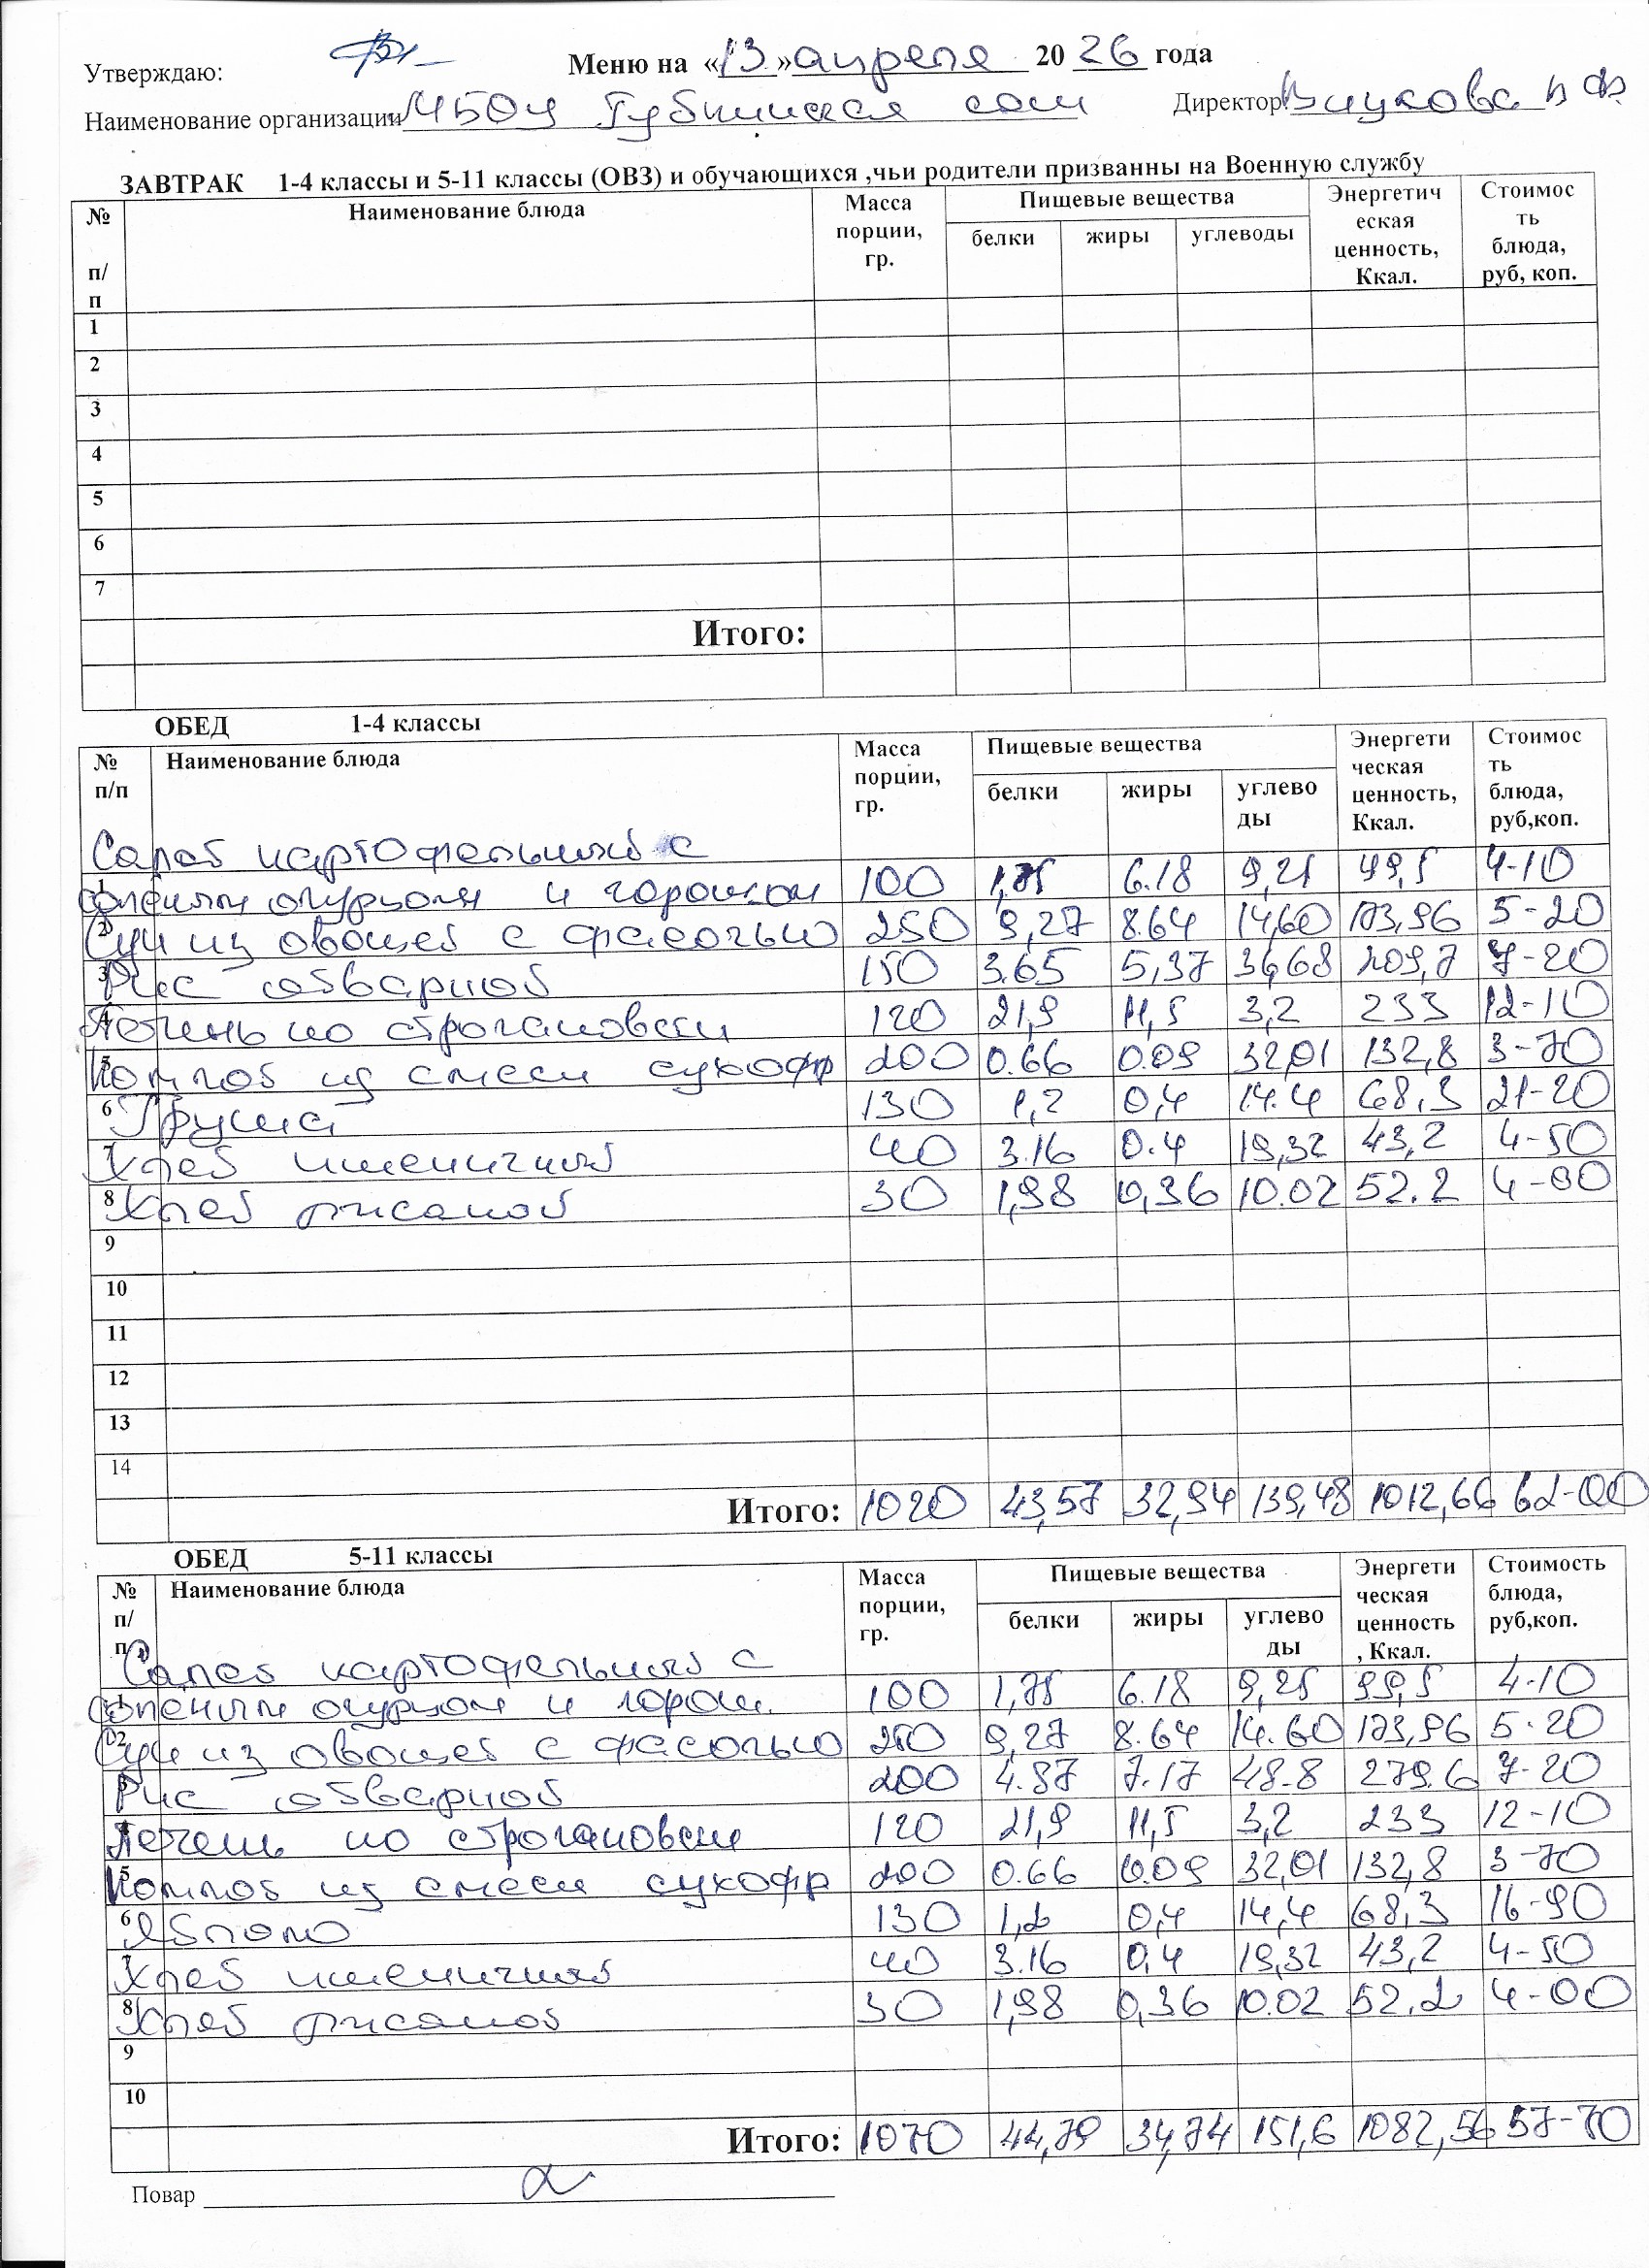 Утверждаю:
Меню на «13» апреля 20 26 года
Наименование организации МБОУ Губкинская сош Директор Внукова В Ф
ЗАВТРАК 1-4 классы и 5-11 классы (ОВЗ) и обучающихся ,чьи родители призванны на Военную службу
№ п/п Наименование блюда Масса порции, гр. Пищевые вещества белки жиры углеводы Энергетическая ценность, Ккал. Стоимость блюда, руб, коп.
1
2
3
4
5
6
7
Итого:
ОБЕД 1-4 классы
№ п/п Наименование блюда Масса порции, гр. Пищевые вещества белки жиры углеводы Энергетическая ценность, Ккал. Стоимость блюда, руб,коп.
Салат картофельный с
1 соленым огурцом и горошком 100 1,75 6.18 9,25 99,5 4-10
2 Суп из овощей с фасолью 250 9,27 8.64 14,60 173,96 5-20
3 Рис отварной 150 3.65 5,37 36,68 209,7 7-20
4 Печень по строгановски 120 21,9 11,5 3,2 233 12-10
5 Компот из смеси сухофр 200 0.66 0.09 32,01 132,8 3-70
6 Груша 130 1,2 0,4 14.4 68,3 21-20
7 Хлеб пшеничный 40 3.16 0.4 19,32 43,2 4-50
8 Хлеб ржаной 30 1,98 0,36 10.02 52.2 4-00
9
10
11
12
13
14
Итого: 1020 43,57 32,94 139,48 1012,66 62-00
ОБЕД 5-11 классы
№ п/п Наименование блюда Масса порции, гр. Пищевые вещества белки жиры углеводы Энергетическая ценность, Ккал. Стоимость блюда, руб,коп.
Салат картофельный с
1 соленым огурцом и горош. 100 1,75 6.18 9,25 99,5 4-10
2 Суп из овощей с фасолью 250 9,27 8.64 14.60 173,96 5-20
3 Рис отварной 200 4.87 7.17 48.8 279.6 7-20
4 Печень по строгановски 120 21,9 11,5 3,2 233 12-10
5 Компот из смеси сухофр 200 0.66 0.09 32,01 132,8 3-70
6 Яблоко 130 1,2 0,4 14,4 68,3 16-90
7 Хлеб пшеничный 40 3.16 0,4 19,32 43,2 4-50
8 Хлеб ржаной 30 1,98 0,36 10.02 52,2 4-00
9
10
Итого: 1070 44,79 34,74 151,6 1082,56 57-70
Повар